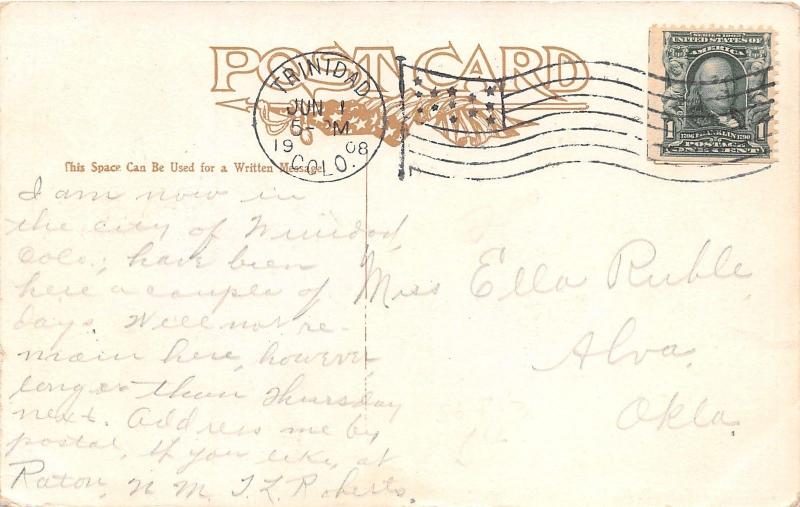 POST CARD
TRINIDAD
JUN 1
5- PM
19 08
COLO.
SERIES 1902
UNITED STATES OF
AMERICA
1 1706 FRANKLIN 1790 1
POSTAGE
ONE CENT
This Space Can Be Used for a Written Message
I am now in
the city of Trinidad,
Colo.; have been
here a couple of
days. Will not re-
main here, however,
longer than Thursday
next. Address me by
postal, if you like, at
Raton, N. M. T. L. Roberts.
Miss Ella Ruble,
Alva,
Okla.